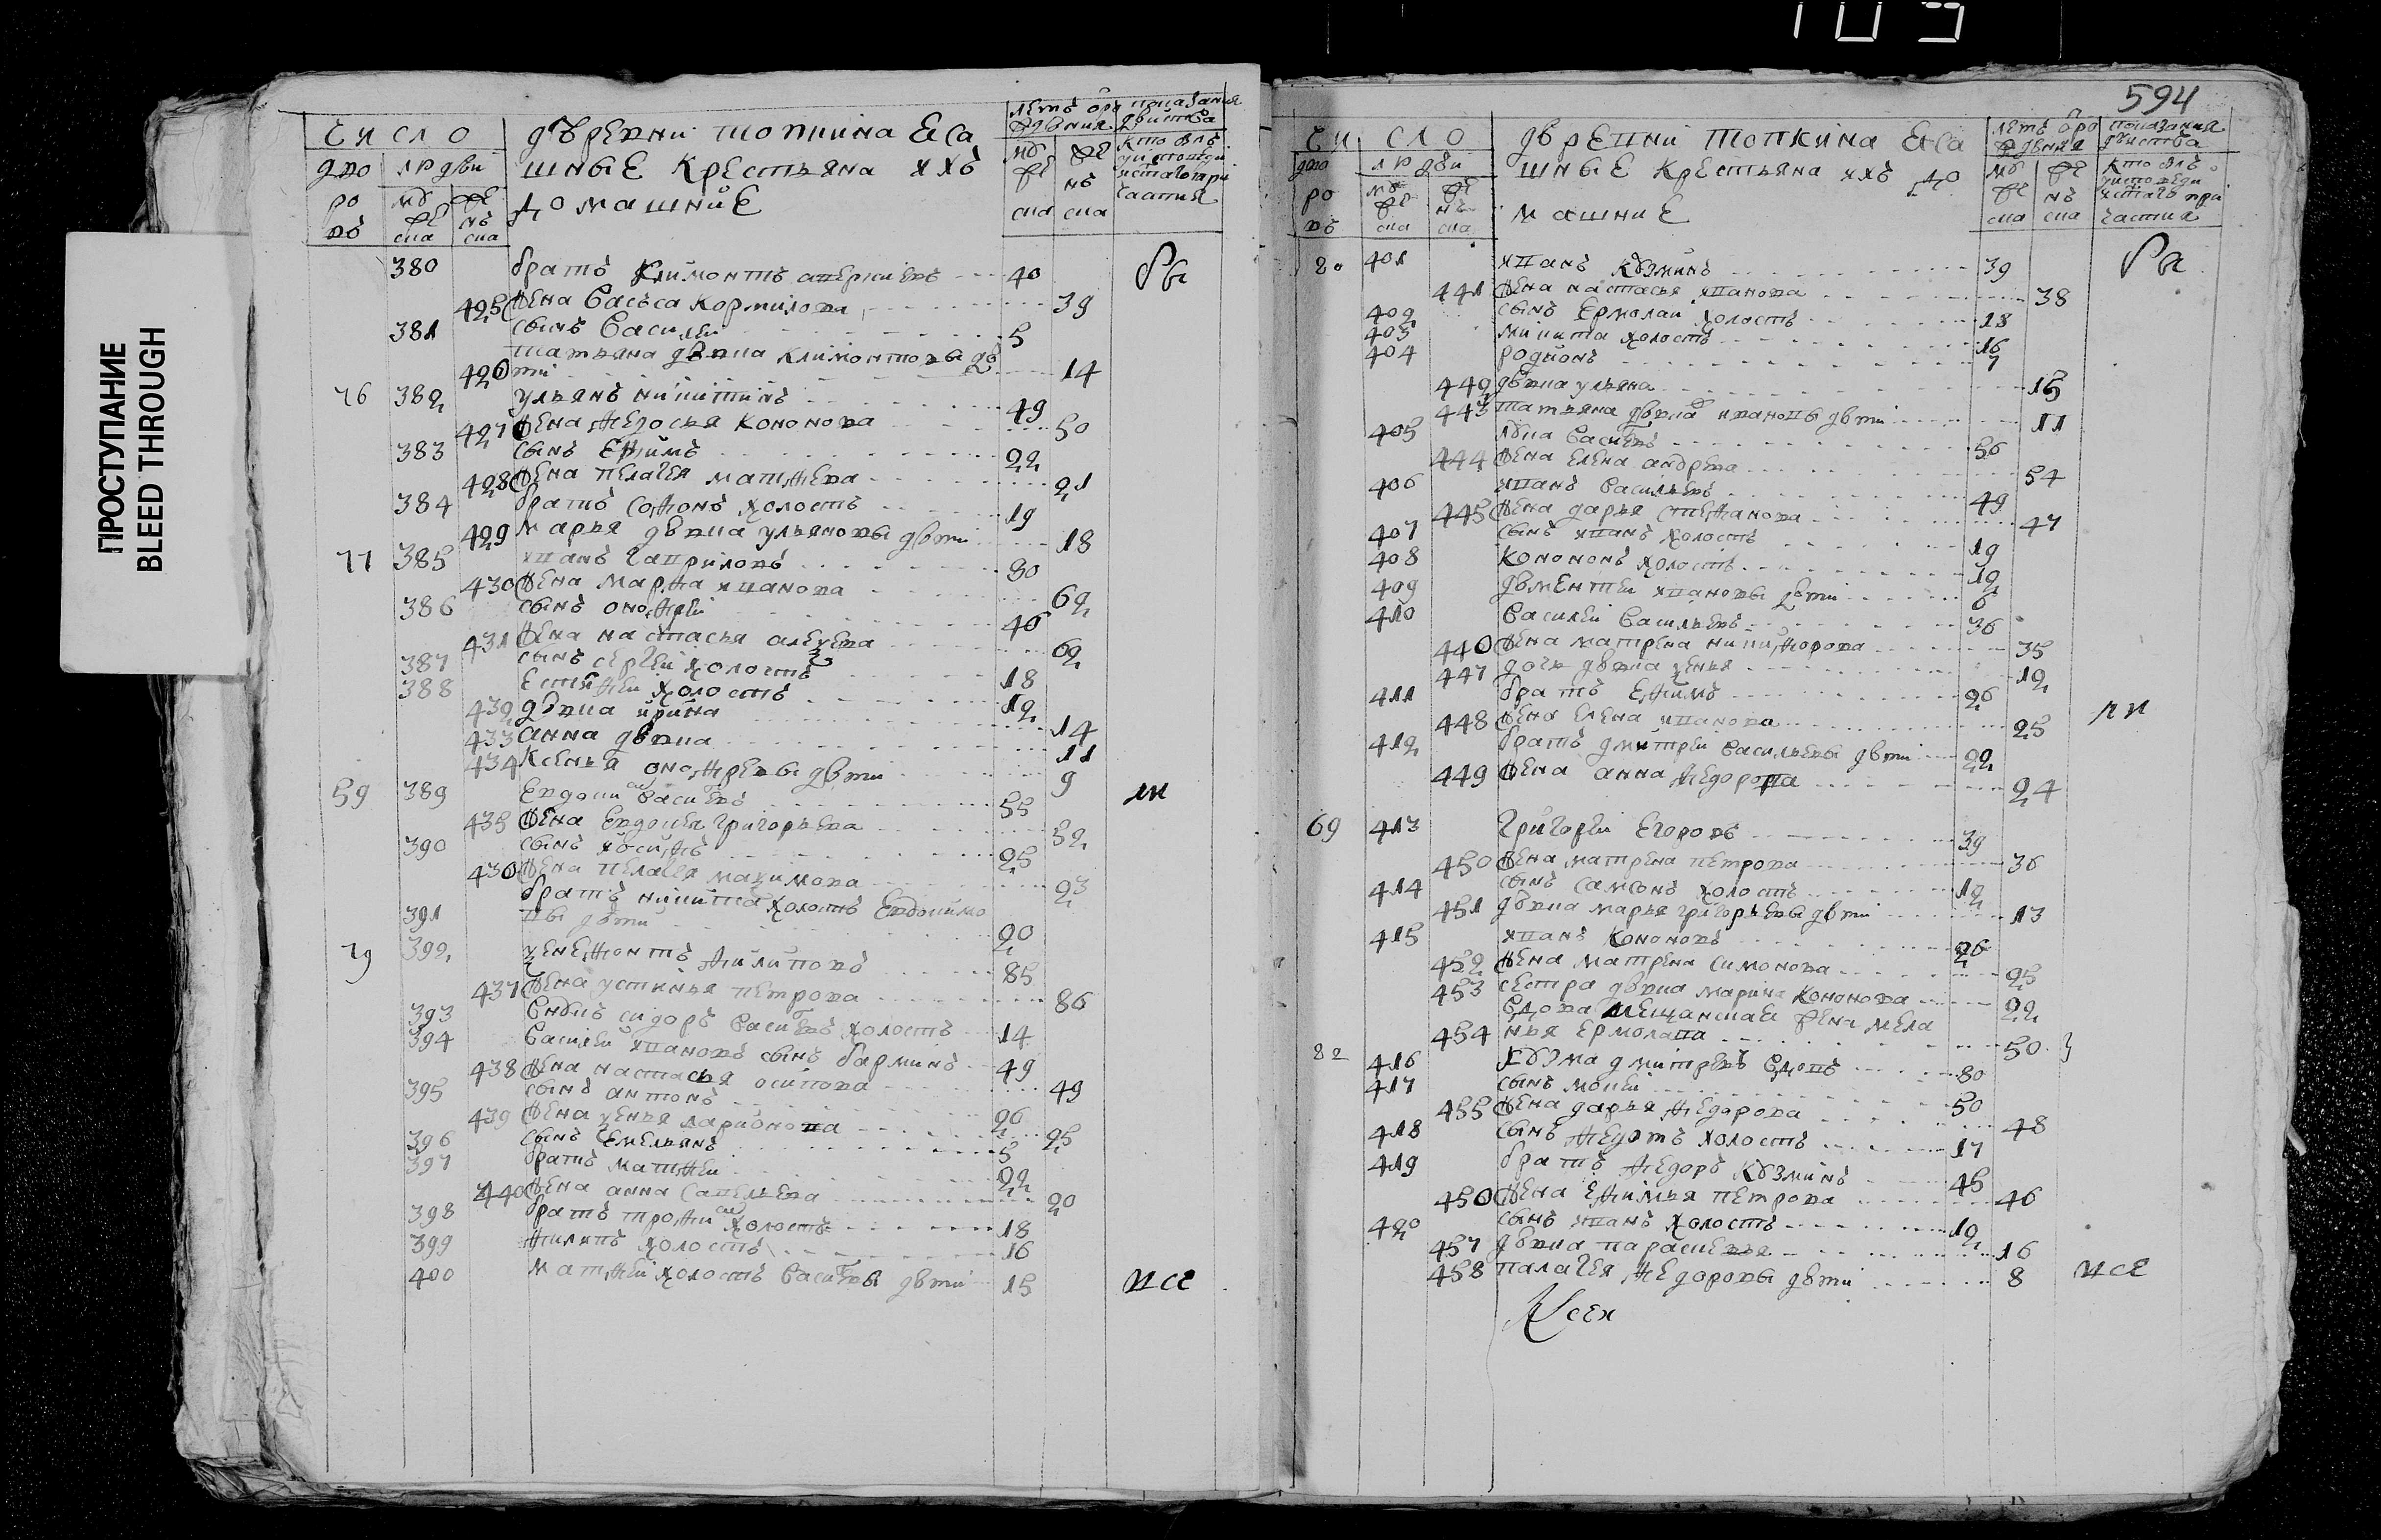 103
ПРОСТУПАНИЕ
BLEED THROUGH
число деревни топкина еса
дво людей шные крестьяна ихъ
ро му же домашние
въ
380 братъ климонтъ 40
425 жена Васъса Кормилова 39
381 сынъ Василей 5
татьяна девка климонтовы де
426 ти 14
76 382 ульянъ никитинъ 49
427 жена федосья кононова 50
383 сынъ ефимъ 22
428 жена пелагея матфева 21
384 братъ софонъ холостъ 19
429 марья девка ульяновы дети 18
77 385 иванъ гавриловъ 80
430 жена марфа иванова 62
386 сынъ онофрей 46
431 жена настасья 62
387 сынъ сергей холостъ 18
388 естифей холостъ 12
432 девка ирина 14
433 анна девка 11
434 ксенья онофревы дети 9
59 389 евдоким васильевъ 55
435 жена евдокея григорьева 52
390 сынъ иосифъ 25
436 жена пелагея маҳимова 23
братъ никита холостъ евдокимо
391 вы дети 20
79 392 ҳенефонтъ филиповъ 85
437 жена устинья петрова 86
393 внукъ сидоръ васильевъ холостъ 14
394 василей ивановъ сынъ барминъ 49
438 жена настасья осипова 49
395 сынъ антонъ 26
439 жена ҳенья ларионова 25
396 сынъ емельянъ 5
397 братъ матфей 22
440 жена анна савельева 20
398 братъ трофим холостъ 18
399 филипъ холостъ 16
400 матфей холостъ васильевы дети 15 все
594
число деревни топкина еса
дво людей шные крестьяна ихъ до
ро машние
въ
80 401 иванъ кузминъ 39
441 жена настасья иванова 38
402 сынъ ермолаи холостъ 18
403 микита холостъ 16
404 родионъ 7
442 девка ульяна 15
443 татьяна девка ивановы дети 11
405 лука васильевъ 56
444 жена елена андрева 54
406 иванъ васильевъ 49
445 жена дарья стефанова 47
407 сынъ иванъ холостъ 19
408 конононъ холостъ 12
409 дементей ивановы дети 6
410 василей васильевъ 36
446 жена матрена никифорова 35
447 дочь девка ҳенья 12
411 братъ ефимъ 26
448 жена елена иванова 25
412 братъ дмитрей васильевы дети 22
449 жена анна федорова 24
69 413 григорей егоровъ 39
450 жена матрена петрова 36
414 сынъ самсонъ холостъ 12
451 девка марья григорьевы дети 13
415 иванъ кононовъ 26
452 жена матрена симонова 25
453 сестра девка марина кононова 22
вдова мещанская жена мела
454 нья ермолава 50
82 416 кузма дмитревъ вдовъ 80
417 сынъ мокей 50
455 жена дарья федорова 48
418 сынъ федотъ холостъ 17
419 братъ федоръ кузминъ 45
456 жена ефимья петрова 46
420 сынъ иванъ холостъ 12
457 девка парасковья 16
458 палагея федоровы дети 8 все